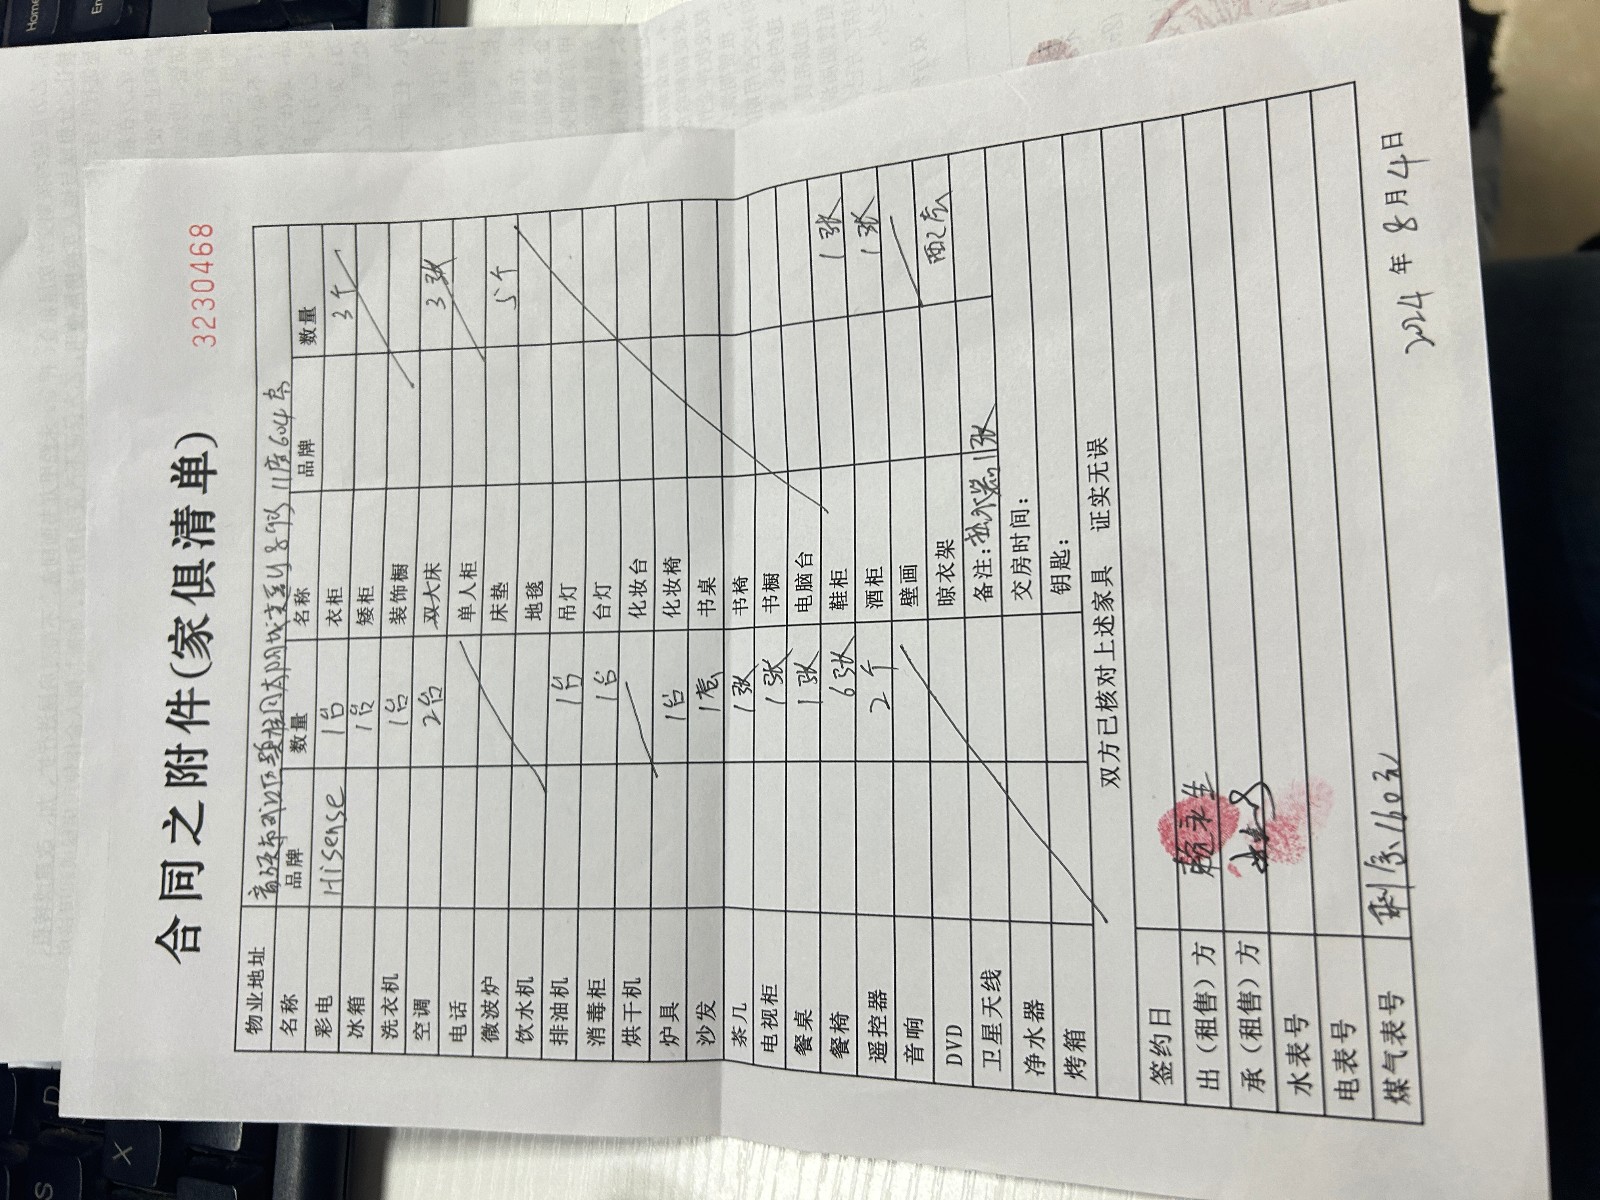 3230468
合同之附件(家俱清单)
物业地址 11座604房
名称 品牌 数量 名称 品牌 数量
彩电 Hisense 1台 衣柜 3个
冰箱 1台 矮柜
洗衣机 1台 装饰橱
空调 2台 双大床 3张
电话 单人柜
微波炉 床垫 5个
饮水机 地毯
排油机 1台 吊灯
消毒柜 1台 台灯
烘干机 化妆台
炉具 1台 化妆椅
沙发 1套 书桌
茶几 1张 书椅
电视柜 1张 书橱
餐桌 1张 电脑台
餐椅 6张 鞋柜 1张
遥控器 2个 酒柜 1张
音响 壁画
DVD 晾衣架 配套
卫星天线 备注:热水器1张
净水器 交房时间:
烤箱 钥匙:
双方已核对上述家具 证实无误
签约日
出（租售）方 赖永生
承（租售）方
水表号
电表号
煤气表号 剩余160元
2024年8月4日
Home
En
S
X
D